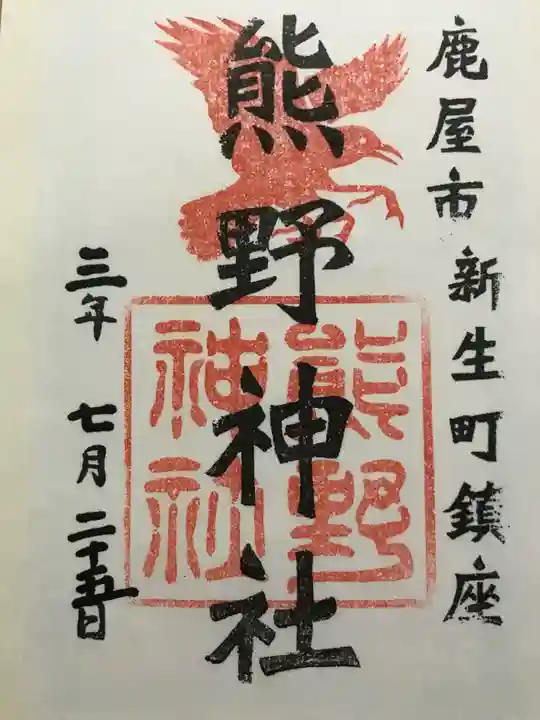 鹿屋市新生町鎮座
熊野神社
熊野
神社
三年 七月二十五日